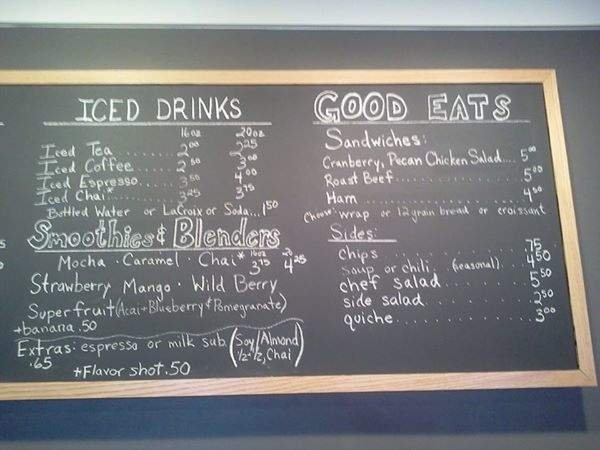 ICED DRINKS
16oz 20oz
Iced Tea........ 2.00 2.25
Iced Coffee....... 2.50 3.00
Iced Espresso..... 3.50 4.00
Iced Chai....... 3.25 3.75
Bottled Water or LaCroix or Soda...1.50
Smoothies & Blenders
Mocha · Caramel · Chai* 16oz 3.75 20 4.25
Strawberry Mango · Wild Berry
Superfruit (Acai+Blueberry+Pomegranate)
+banana .50
Extras: espresso or milk sub. (Soy/Almond
.65 1/2 - 1/2, Chai)
+Flavor shot .50
GOOD EATS
Sandwiches:
Cranberry, Pecan Chicken Salad.... 5.00
Roast Beef............ 5.00
Ham ............ 4.50
Choose: wrap or 12 grain bread or croissant
Sides:
chips .............. .75
soup or chili.. (seasonal).. 4.50
chef salad........... 5.50
side salad........... 2.50
quiche............ 3.00